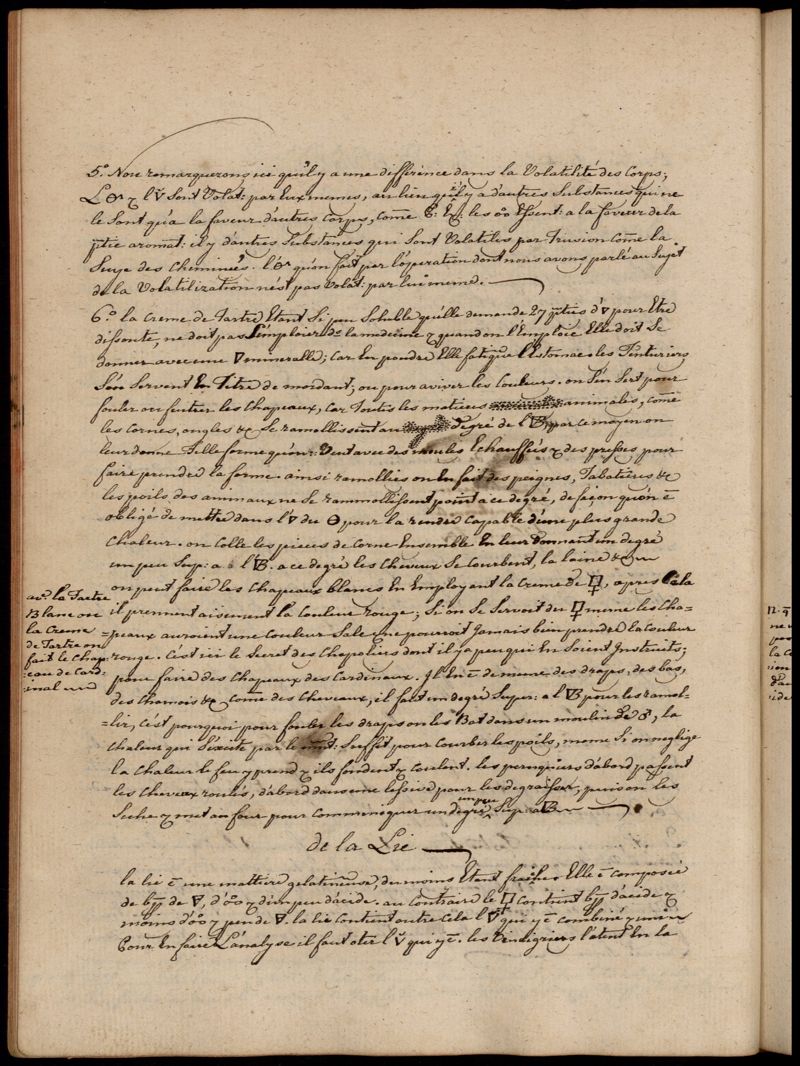 5.° Nous remarquerons ici qu'il y a une différence dans la Volatilité des Corps;
L'🜔 & l'V̆ Sont Volat: par Eux memes, au lieu qu'il y a d'autres Substances qui ne
le Sont qu'a la faveur d'autres Corps, come P. Ex: les oo Essent: a la faveur de la
ptie aromat: il y d'autres Substances qui Sont Volatiles par Trusion come la
Suye des Cheminées. l' qu'on fait par l'operation dont nous avons parlé au Sujet
de la Volatilization n'est pas Volat: par lui meme.
6.° la Creme de Tartre Etant Si peu Soluble qu'elle demande 27 pties d'🜄 pour Etre
dissoute, ne doit pas S'emploier dans la medecine & quand on l'Emploie Elle doit Se
donner avec une 🜄 mineralle; Car En poudre Elle fatigue l'Estomac. les Tinturiers
S'en Servent En Titre de mordant; ou pour aviver les Couleurs. on S'en Sert pour
fouler ou feutrer les Chapeaux, Car Toutes les matieres animales, come
les cornes, ongles &c Se ramollissent au degré de l'🜄B par ce moyen on
leur donne Telle forme qu'on Veut avec des moules Echauffés & des presses pour
faire prendre la forme. ainsi ramollies on En fait des peignes, Tabatieres &c
les poils des animaux ne Se rammollissent point a ce degré, de façon qu'on ē
obligé de mettre dans l'🜄 du 🜔 pour la rendre Capable d'une plus grande
Chaleur. on Colle les pieces de Corne Ensemble En leur donnant un degré
un peu Sup: a l'🜄B. a ce degré les Cheveux Se Courbent, la laine &c
on peut faire les Chapeaux blancs En Employant la Creme de 🜿, apres Cela
il prennent aisement la Couleur rouge; Si on Se Servoit du 🜿 meme les Cha=
=peaux auroient une Couleur Sale & ne pourroit Jamais bien prendre la Couleur
rouge. C'est ici le Secret des Chapeliers dont il y a peu qui En Soient Instruits;
pour faire des Chapeaux des Cardinaux. Il En ē de meme des draps, des bas,
des Chamois &c come des Cheveaux, il faut un degré Super: a l'🜄B pour les ramol=
=lir, C'est pourquoi pour fouler les draps on les Bat dans un moulin de ♂, la
Chaleur qui S'excite par le mt: Suffit pour Courber les poils, meme Si on neglige
la Chaleur le feu y prend & ils fondent & Coulent. les peruquiers d'abord passent
les Cheveux roulés, d'abord dans une lessive pour les degraisser, puis on les
Seche & met au four pour Communiquer un degré un peu Sup: a 🜄B
av. la Tartre
Blanc ou
la Creme
de Tartre on
fait le Chap-
eau de Card-
inal
de la Lie
la lie ē une mattiere gelatineuse, du moins Etant fraiche. Elle ē composée
de bp de 🜄, d'oo & d'un peu d'acide. au Contraire le 🜿 Contient bp d'acide &
moins d'oo & peu de 🜄. la lie Contient outre Cela l'V̆ qui y ē Combiné & uni
Pour En faire L'analyse il faut oter l'V̆ qui y ē. les Vinaigriers l'otent En la